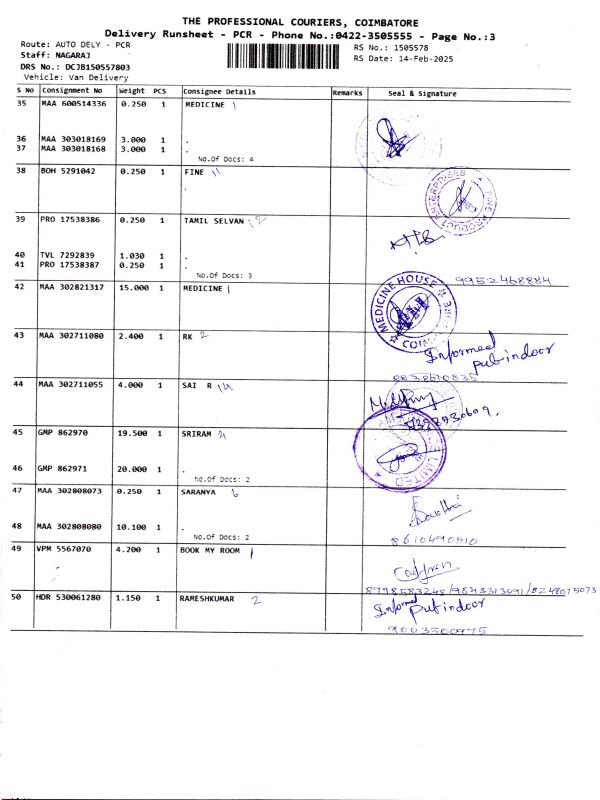 THE PROFESSIONAL COURIERS, COIMBATORE
Delivery Runsheet - PCR - Phone No.:0422-3505555 - Page No.:3
Route: AUTO DELY - PCR RS No.: 1505578
Staff: NAGARAJ RS Date: 14-Feb-2025
DRS No.: DCJB150557803
Vehicle: Van Delivery
S No Consignment No Weight PCS Consignee Details Remarks Seal & Signature
35 MAA 600514336 0.250 1 MEDICINE 1
36 MAA 303018169 3.000 1 .
37 MAA 303018168 3.000 1 .
No.Of Docs: 4
38 BOH 5291042 0.250 1 FINE
.
39 PRO 17538386 0.250 1 TAMIL SELVAN 2
40 TVL 7292839 1.030 1 .
41 PRO 17538387 0.250 1 .
No.Of Docs: 3
9952468884
42 MAA 302821317 15.000 1 MEDICINE 1
MEDICINE HOUSE
43 MAA 302711080 2.400 1 RK 2
Informed
put indoor
8838610835
44 MAA 302711055 4.000 1 SAI R
45 GMP 862970 19.500 1 SRIRAM
LIMITED
46 GMP 862971 20.000 1 .
No.Of Docs: 2
47 MAA 302808073 0.250 1 SARANYA 6
48 MAA 302808080 10.100 1 .
No.Of Docs: 2
8610490510
49 VPM 5567070 4.200 1 BOOK MY ROOM 1
8798583248/9843313091/8248075073
50 HDR 530061280 1.150 1 RAMESHKUMAR 2
Informed put indoor
9003500975